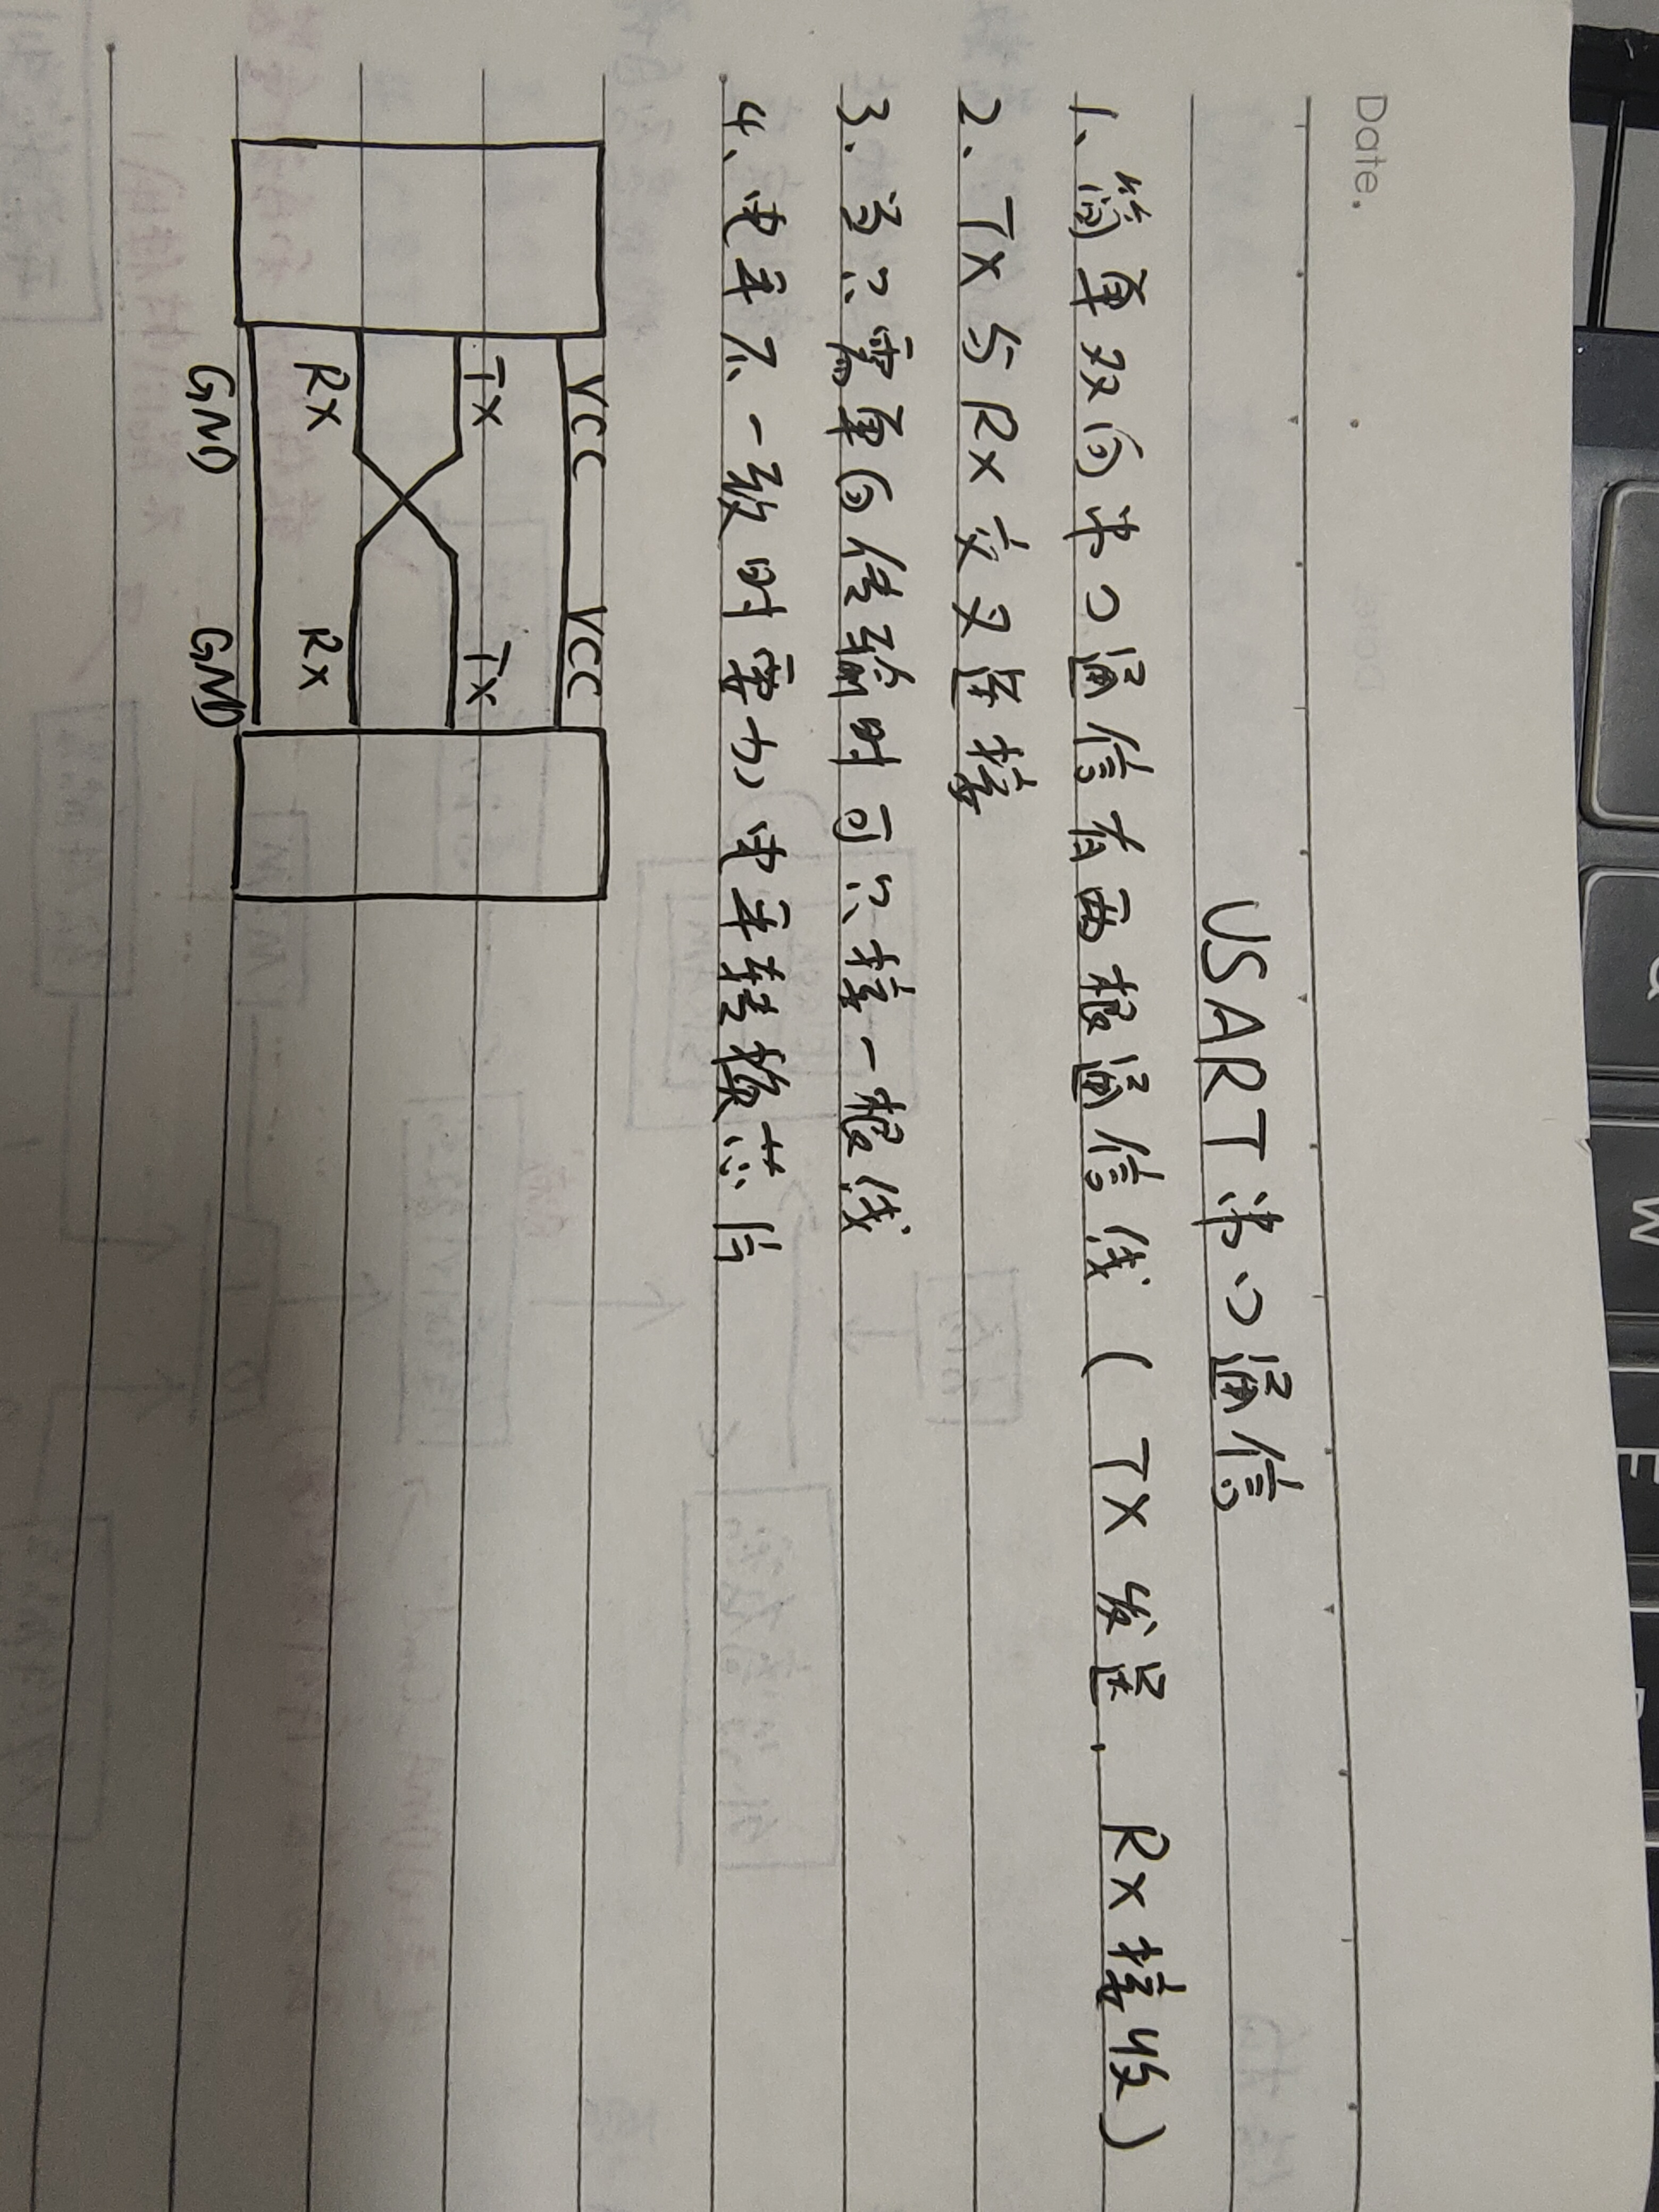 Date.
USART串口通信
1、简单双向串口通信有两根通信线(TX发送、RX接收)
2、TX与RX交叉连接
3、当只需单向传输时可只接一根线
4、电平不一致时需加电平转换芯片
VCC VCC
TX TX
RX RX
GND GND
W
E